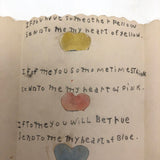 If you have some other fellow
Send to me my heart of yellow.
If of me you sometimes think
Send to me my heart of Pink.
If to me you will Be true
Send to me my heart of Blue.